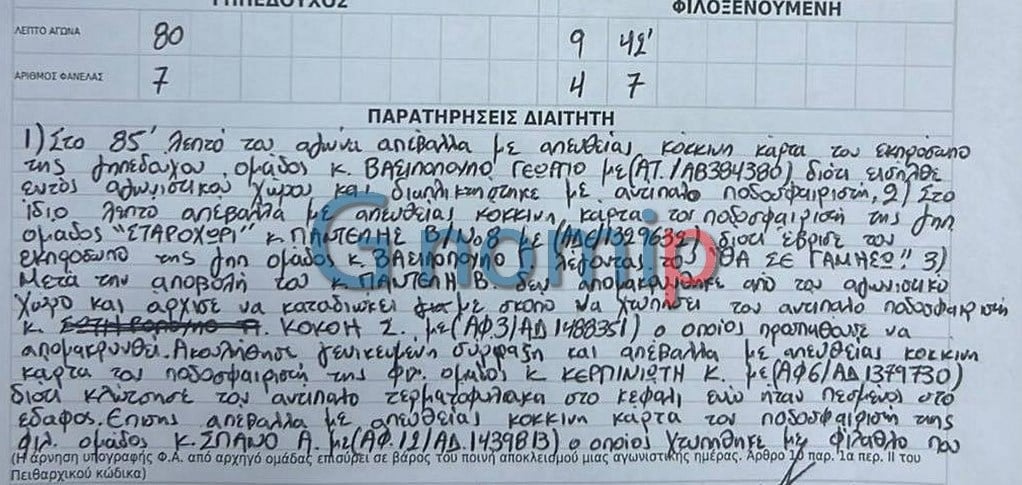 ΓΗΠΕΔΟΥΧΟΣ ΦΙΛΟΞΕΝΟΥΜΕΝΗ
ΛΕΠΤΟ ΑΓΩΝΑ 80 9 42'
ΑΡΙΘΜΟΣ ΦΑΝΕΛΑΣ 7 4 7
ΠΑΡΑΤΗΡΗΣΕΙΣ ΔΙΑΙΤΗΤΗ
1) Στο 85' λεπτό του αγώνα απέβαλλα με απευθείας κόκκινη κάρτα τον εκπρόσωπο
της γηπεδούχου ομάδος κ. ΒΑΣΙΛΟΠΟΥΛΟ ΓΕΩΡΓΙΟ με (ΑΤ./ΑΒ384380) διότι εισήλθε
εντός αγωνιστικού χώρου και διαπληκτίστηκε με αντίπαλο ποδοσφαιριστή, 2) Στο
ίδιο λεπτό απέβαλλα με απευθείας κόκκινη κάρτα τον ποδοσφαιριστή της γηπ
ομάδος "ΣΤΑΡΟΧΩΡΙ" κ ΠΑΝΤΕΛΗΣ Β με διότι έβρισε τον
εκπρόσωπο της γηπ ομάδος κ ΒΑΣΙΛΟΠΟΥΛΟ λέγοντας του "ΘΑ ΣΕ ΓΑΜΗΣΩ" 3)
Μετά την αποβολή του κ ΠΑΝΤΕΛΗ Β. δεν απομακρύνθηκε από τον αγωνιστικό
χώρο και άρχισε να καταδιώκει με σκοπό να χτυπήσει τον αντίπαλο ποδοσφαιριστή
κ. ΚΟΚΟΗ Σ. με (ΑΦ.3/ΑΔ 1488351) ο οποίος προσπάθαλε να
απομακρυνθεί. Ακολήθησε γενικευμένη σύρραξη και απέβαλλα με απευθείας κόκκινη
κάρτα τον ποδοσφαιριστή της φιλ. ομάδος κ ΚΕΡΠΙΝΙΩΤΗ Κ. με (ΑΦ6/ΑΔ 1379730)
διότι κλώτσησε τον αντίπαλο τερματοφύλακα στο κεφάλι ενώ ήταν πεσμένος στο
έδαφος. Επίσης απέβαλλα με απευθείας κόκκινη κάρτα τον ποδοσφαιριστή της
φιλ. ομάδος κ. ΣΠΑΝΟ Α. με (ΑΦ.12/ΑΔ.1439813) ο οποίος χτυπήθηκε με φίλαθλο που
(Η άρνηση υπογραφής Φ.Α. από αρχηγό ομάδας επισύρει σε βάρος του ποινή αποκλεισμού μιας αγωνιστικής ημέρας. Άρθρο 10 παρ. 1α περ. ΙΙ του
Πειθαρχικού κώδικα)
Gnomip